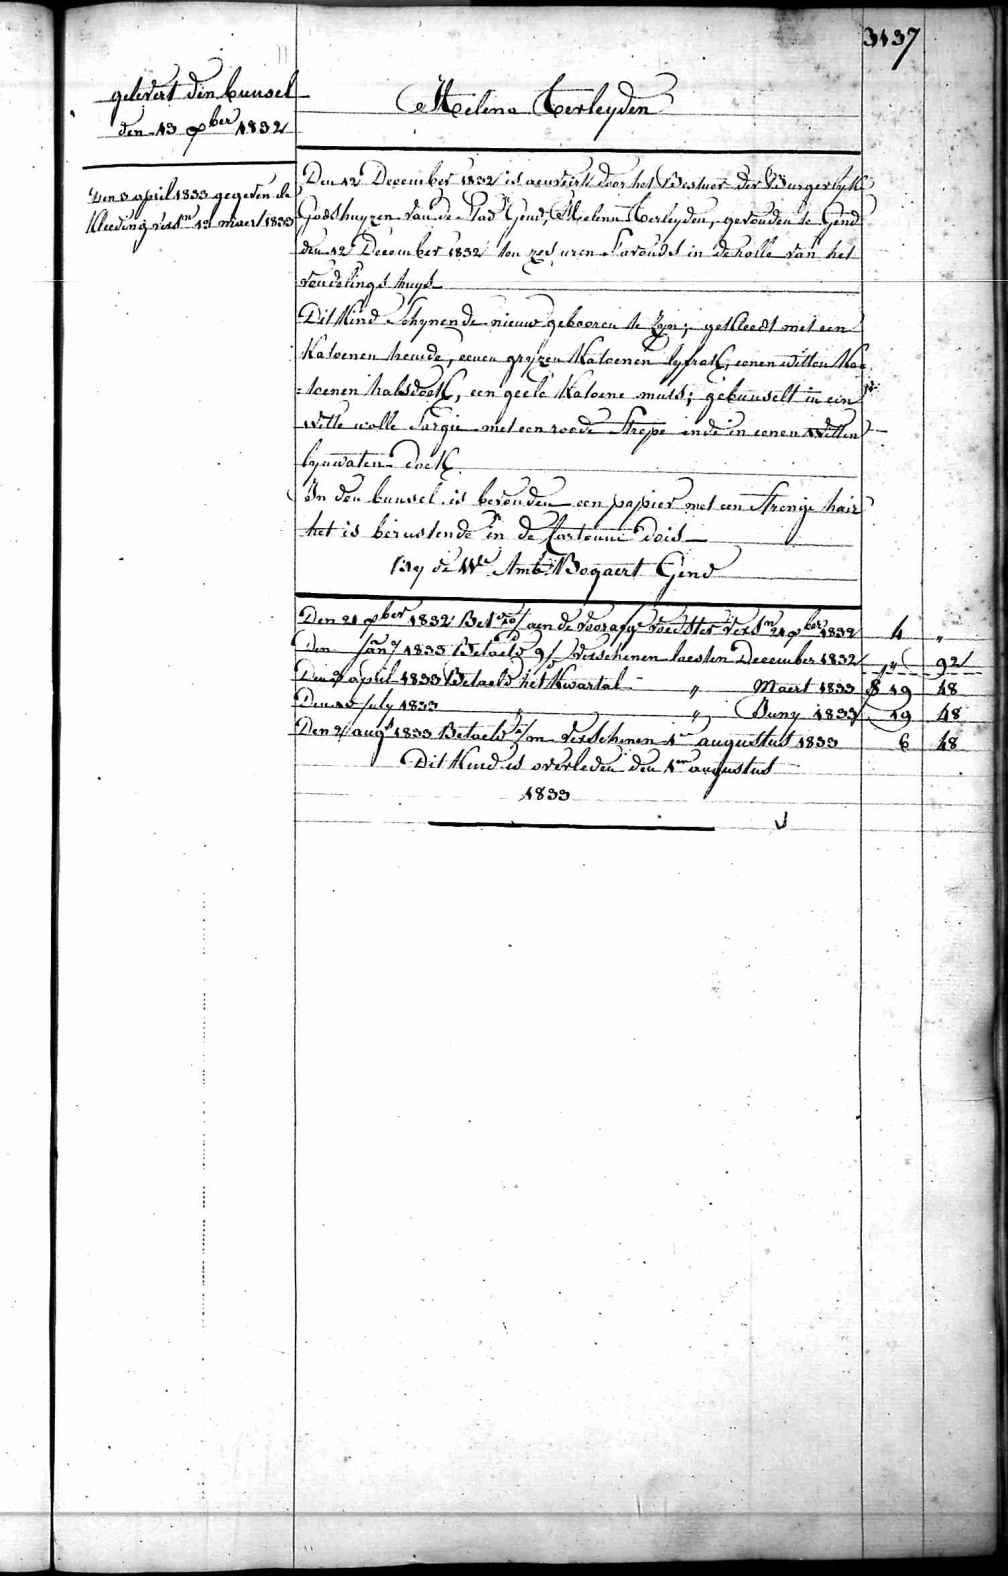 3137
gelevert den bunsel
den 13 xber 1832
Den 3 april 1833 gegeven de
Kleeding versn 12 maert 1833
Melena Terleyden
Den 12 December 1832 is aenveird door het Bestuer der Burgerlyke
Godshuyzen van de Stad Gend, Melena Terleyden, gevonden te Gend
den 12 December 1832 ten zes uren s'avonds in de rolle van het
vondelings huys
Dit Kind Schynende nieuw gebooren te zyn; gekleedt met een
Katoenen hemde, eenen gryzen Katoenen lyfrok, eenen witten Ka=
=toenen halsdoek, een geele Katoene muts; gebunselt in een
witte wolle Sargie met een roode Strepe ende in eenen witten
lynwaten doek
In den bunsel is bevonden een papier met een Strenge hair
het is berustende in de Cartonni dois
By de We Amb. Bogaert Gend
Den 21 xber 1832 Bet aen de voorafge voedster versn 21 xber 1832 4 "
den Jany 1833 Betaeld 9/ verschenen laesten December 1832 " 92
Den 3 april 1833 Betaeld het Kwartal " Maert 1833 19 48
Den 10 July 1833 " " Juny 1833 19 48
Den 21 augs 1833 Betaeld /m verschenen 1n augustus 1833 6 48
Dit Kind is overleden den 1en augustus
1833